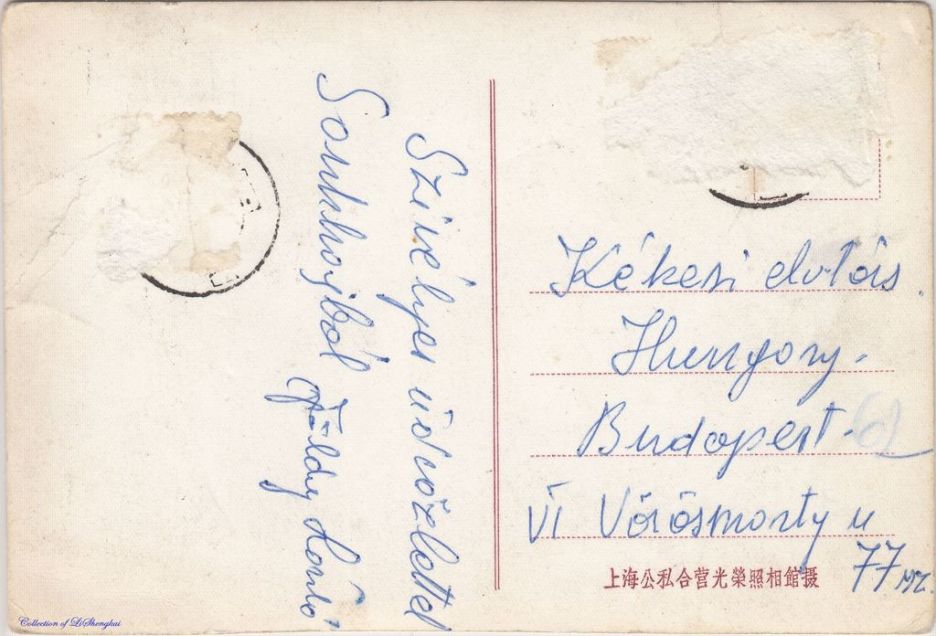 Szivélyes üdvözlettel
Sankhajból
Földy
Kékesi elvtás.
Hungary.
Budapest. 62
VI Vörösmarty u
77
上海公私合营光榮照相館摄
Collection of LiShenghai